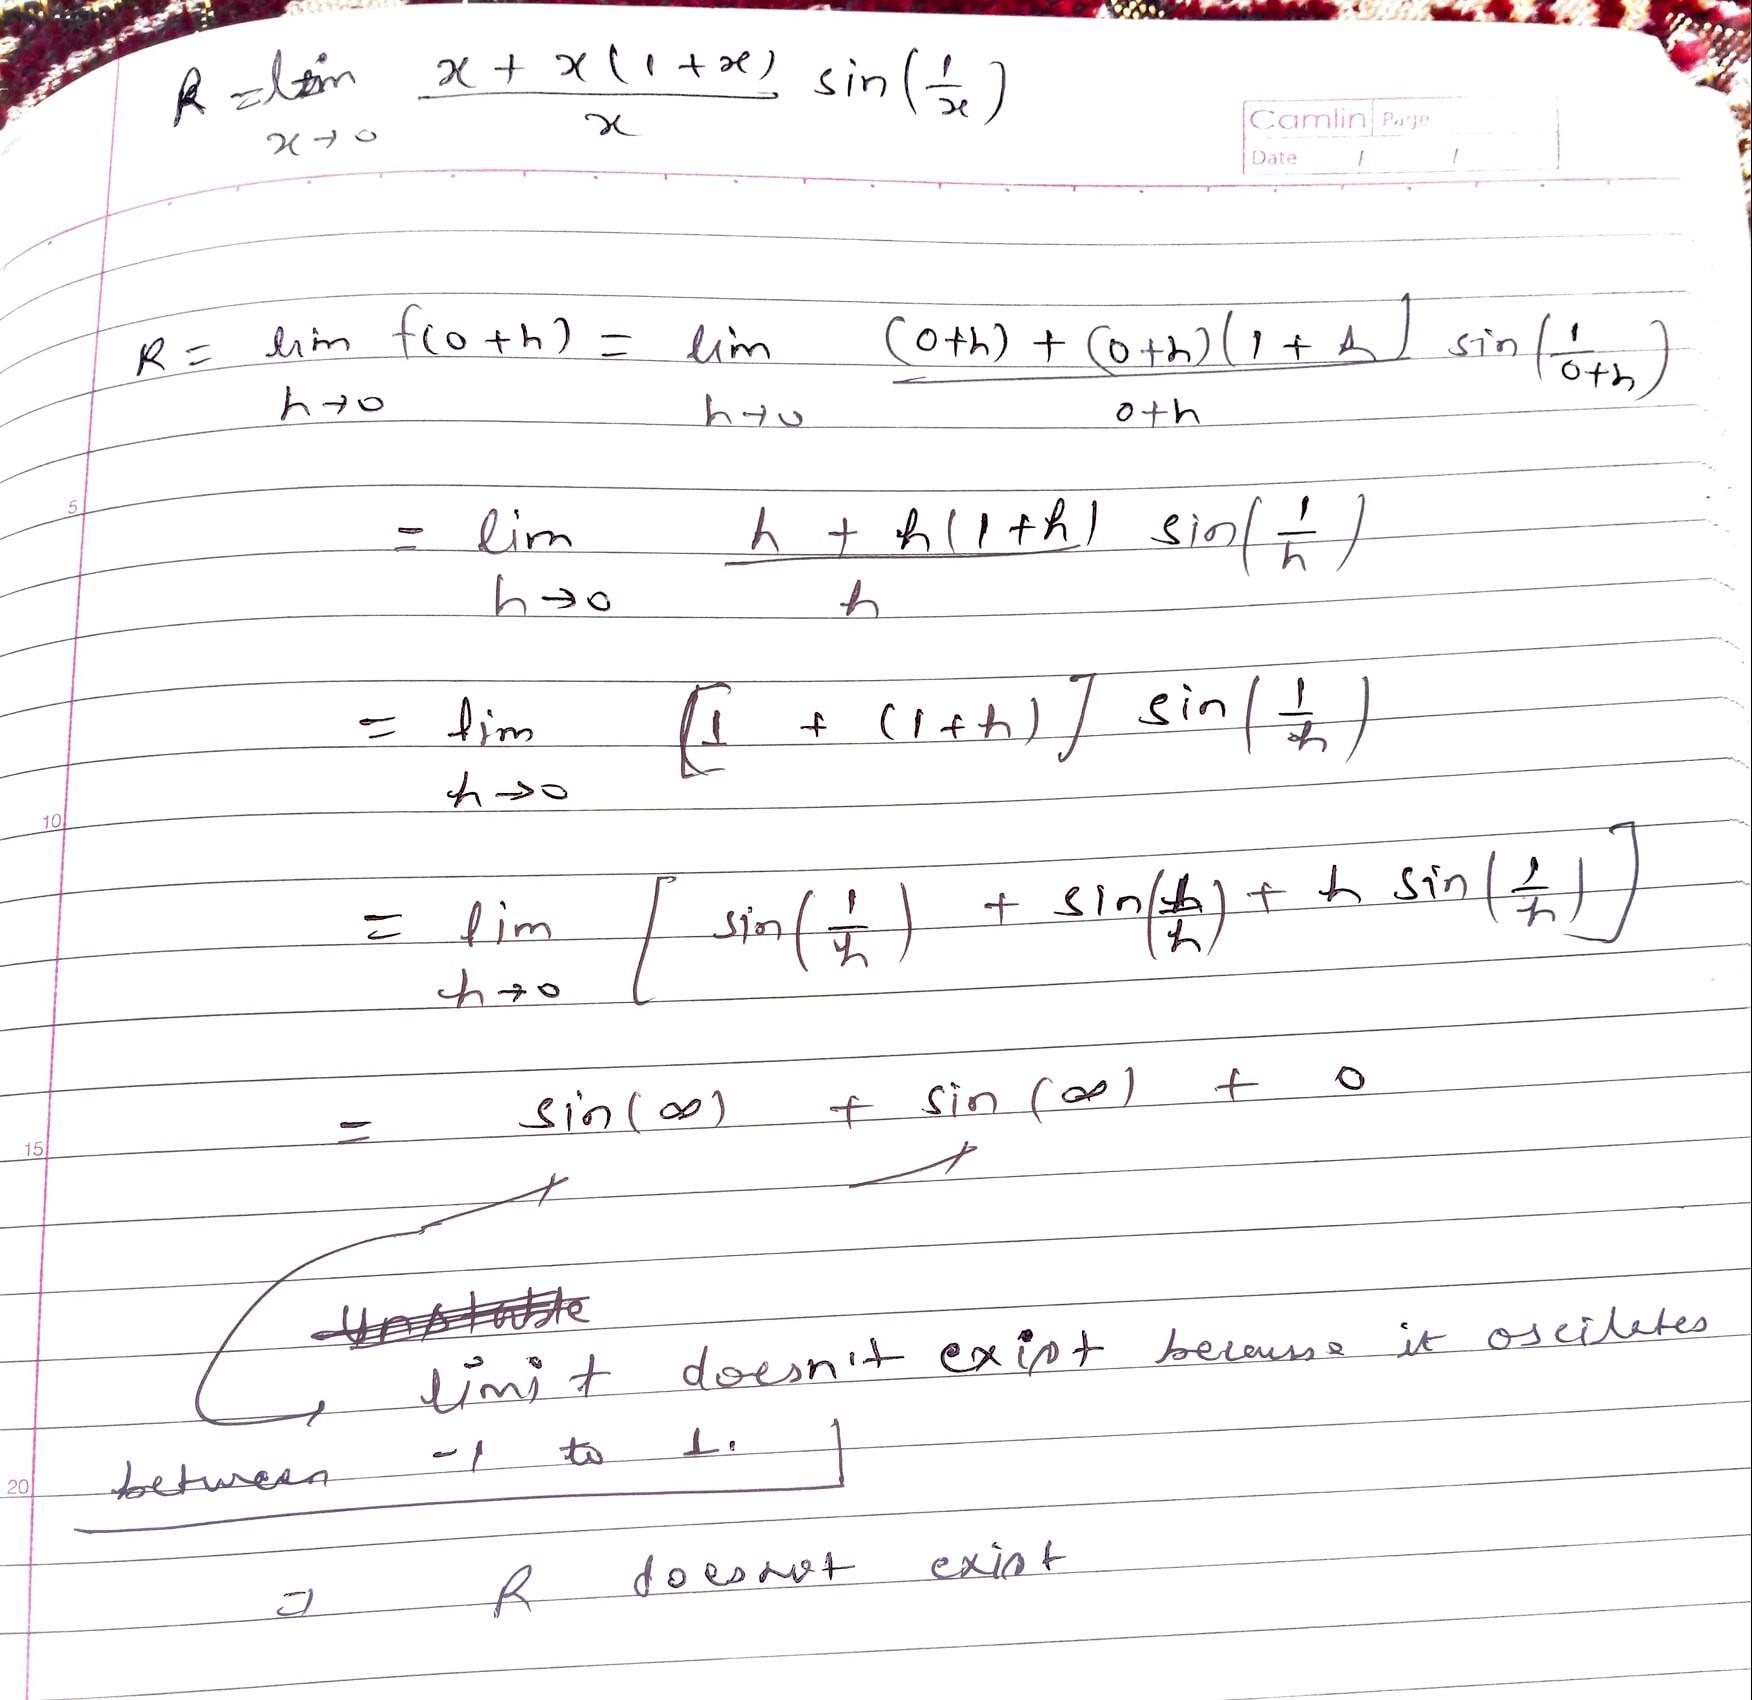 R = lim x + x(1+x) sin(1/x)
x→0 x
Camlin Page
Date / /
R = lim f(0+h) = lim (0+h) + (0+h)(1+h] sin(1/0+h)
h→0 h→0 0+h
5
= lim h + h(1+h) sin(1/h)
h→0 h
= lim [1 + (1+h)] sin(1/h)
h→0
10
= lim [sin(1/h) + sin(1/h) + h sin(1/h)]
h→0
= sin(∞) + sin(∞) + 0
15
Unstable
limit doesn't exist because it oscilates
between -1 to 1.
20
⇒ R does not exist